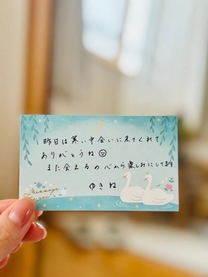 昨日は寒い中会いに来てくれて
ありがとうね☺
また会えるの心から楽しみにしてます
ゆきね